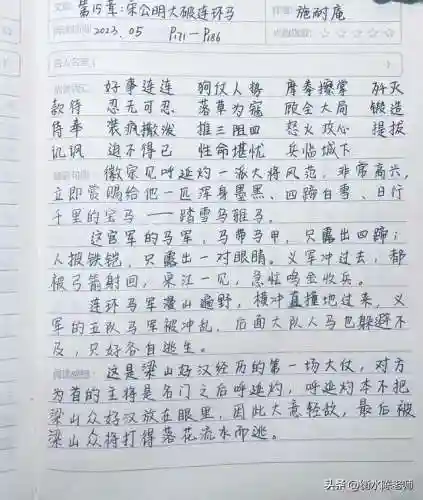 文题: 第15章:宋公明大破连环马 作者: 施耐庵
阅读时间: 2023.05 P171-P186 ☆☆☆☆☆
好事连连 狗仗人势 摩拳擦掌 歼灭
款待 忍无可忍 落草为寇 顾全大局 锻造
侍奉 装疯撒泼 推三阻四 怒火攻心 提拔
讥讽 迫不得已 性命堪忧 兵临城下
徽宗见呼延灼一派大将风范,非常高兴,
立即赏赐给他一匹浑身墨黑、四蹄白雪、日行
千里的宝马——踏雪乌骓马。
这官军的马军,马带马甲,只露出四蹄;
人披铁铠,只露出一对眼睛。义军冲过去,都
被弓箭射回,宋江一见,急忙鸣金收兵。
连环马军漫山遍野,横冲直撞地过来,义
军的五队马军被冲乱,后面大队人马也躲避不
及,只好各自逃生。
阅读感悟: 这是梁山好汉经历的第一场大仗,对方
为首的主将是名门之后呼延灼,呼延灼本不把
梁山众好汉放在眼里,因此大意轻敌,最后被
梁山众将打得落花流水而逃。
头条 @衡水陈老师